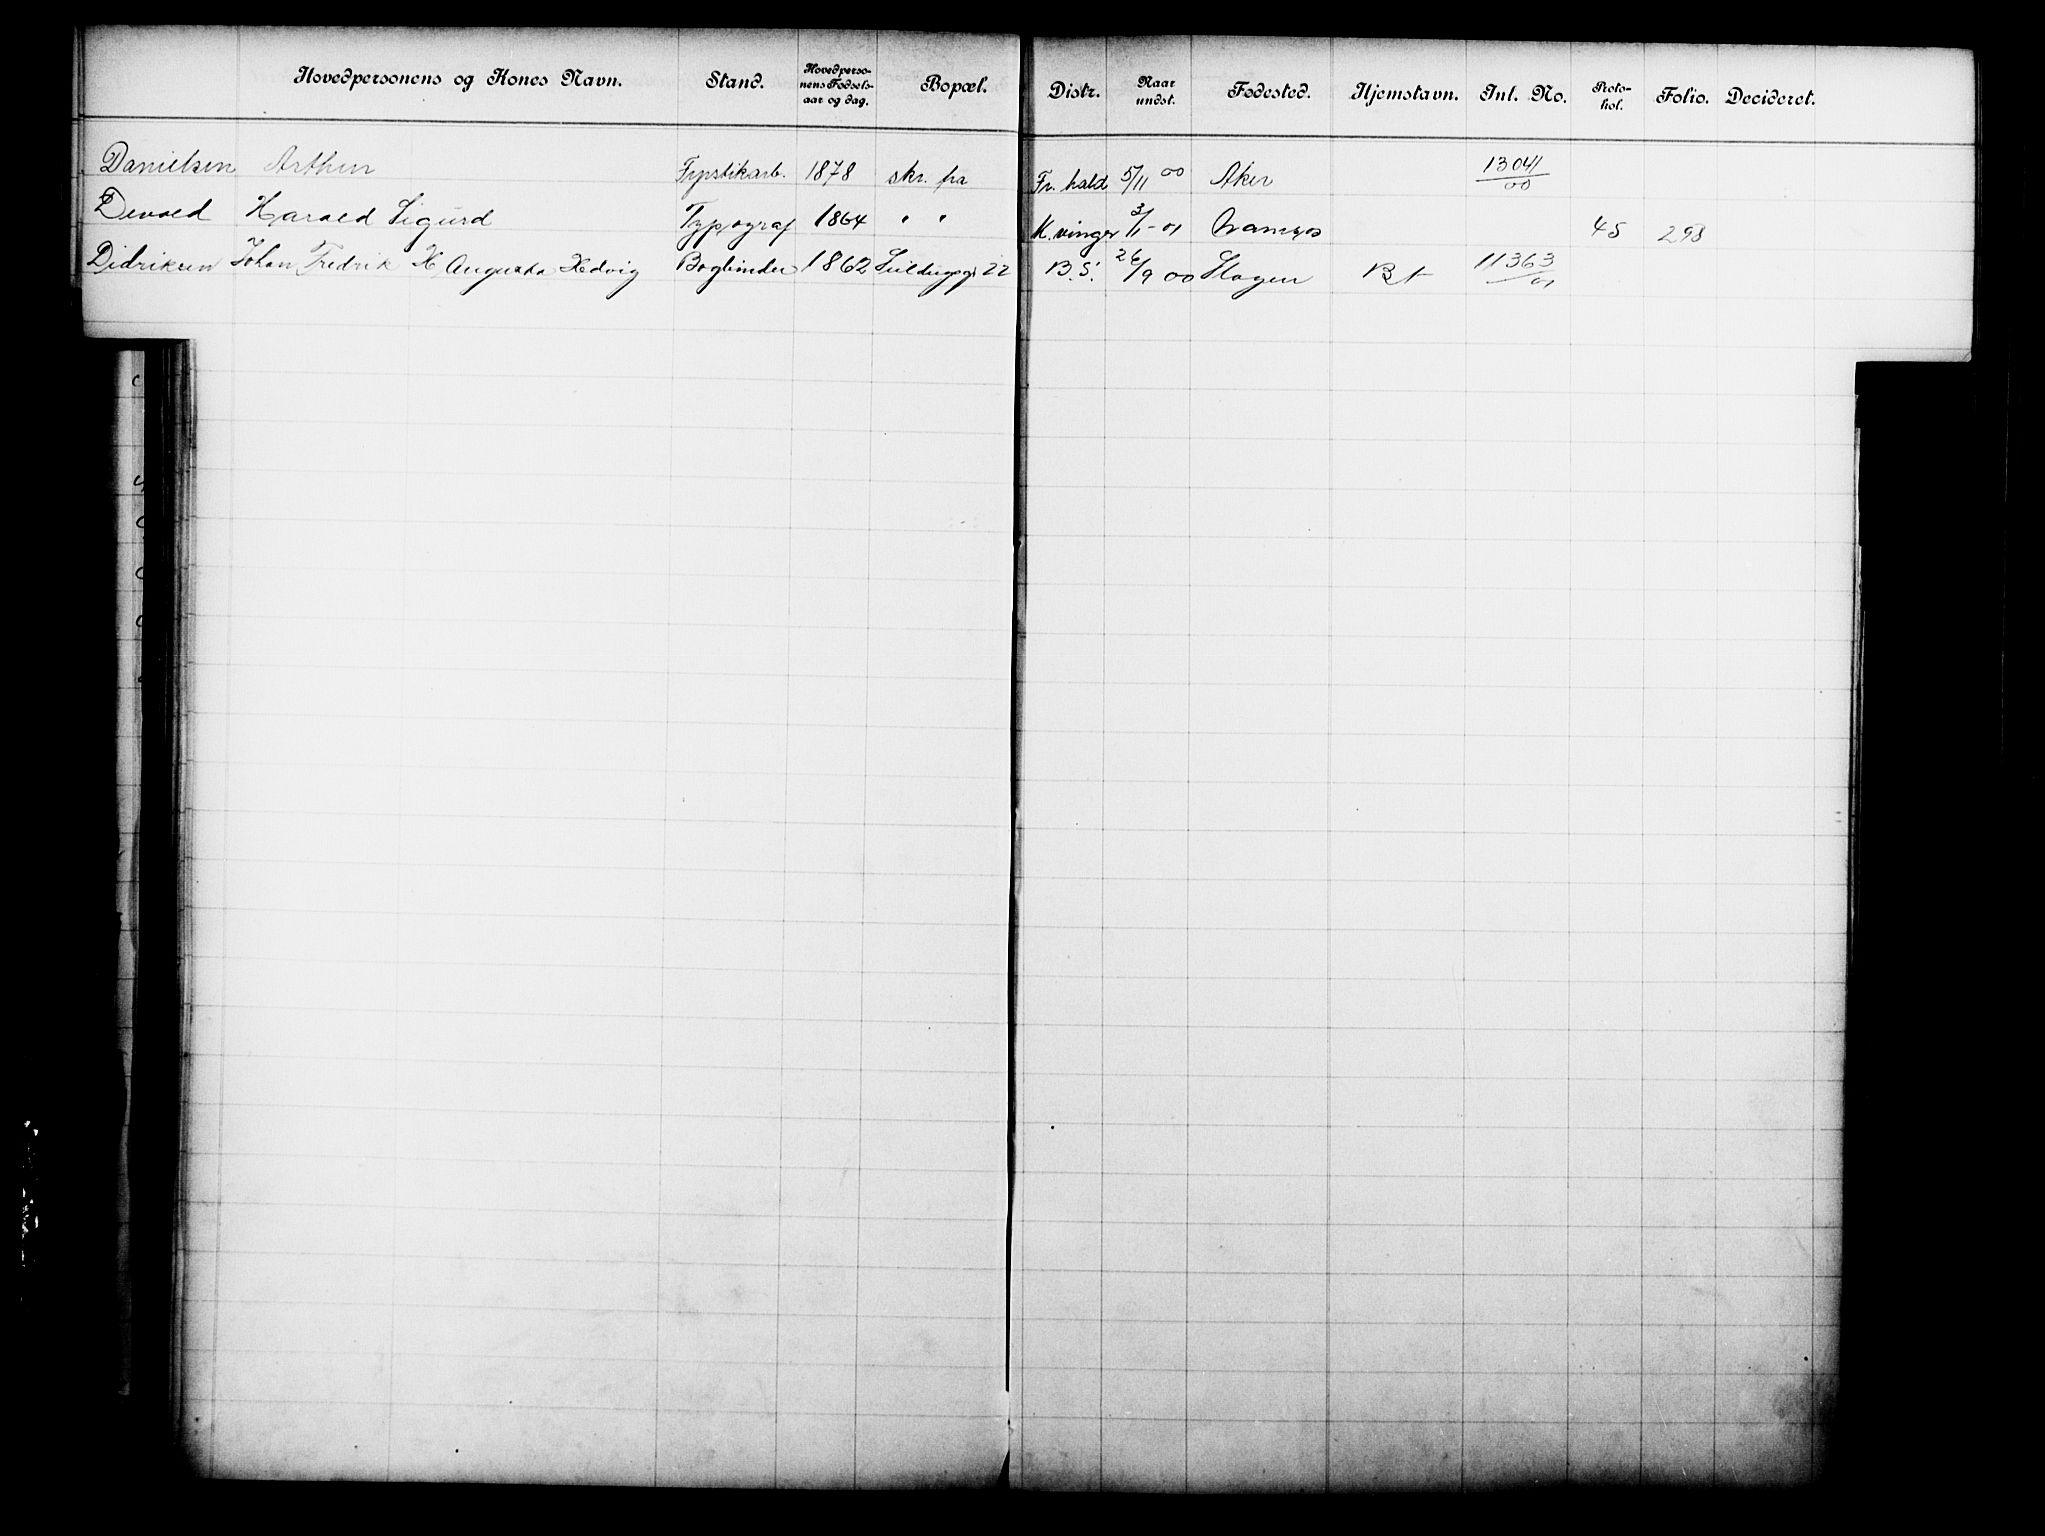 Hovedpersonens og Kones Navn. Stand. Hovedpersonens Fødselsaar og dag. Bopæl. Distr. Naar undst. Fødested. Hjemstavn. Int. No. Protokol. Folio. Decideret.
Danielsen Arthur Fyrstikarb. 1878 skr. fra Fr. hald 5/11 00 Aker 13041/00
Devold Harald Sigurd Typograf 1864 " " K.vinger 3/1-01 Namsos 45 298
Didriksen Johan Fredrik H Augusta Hedvig Bogbinder 1862 22 B.S. 26/9 00 Slagen Bt 11363/01